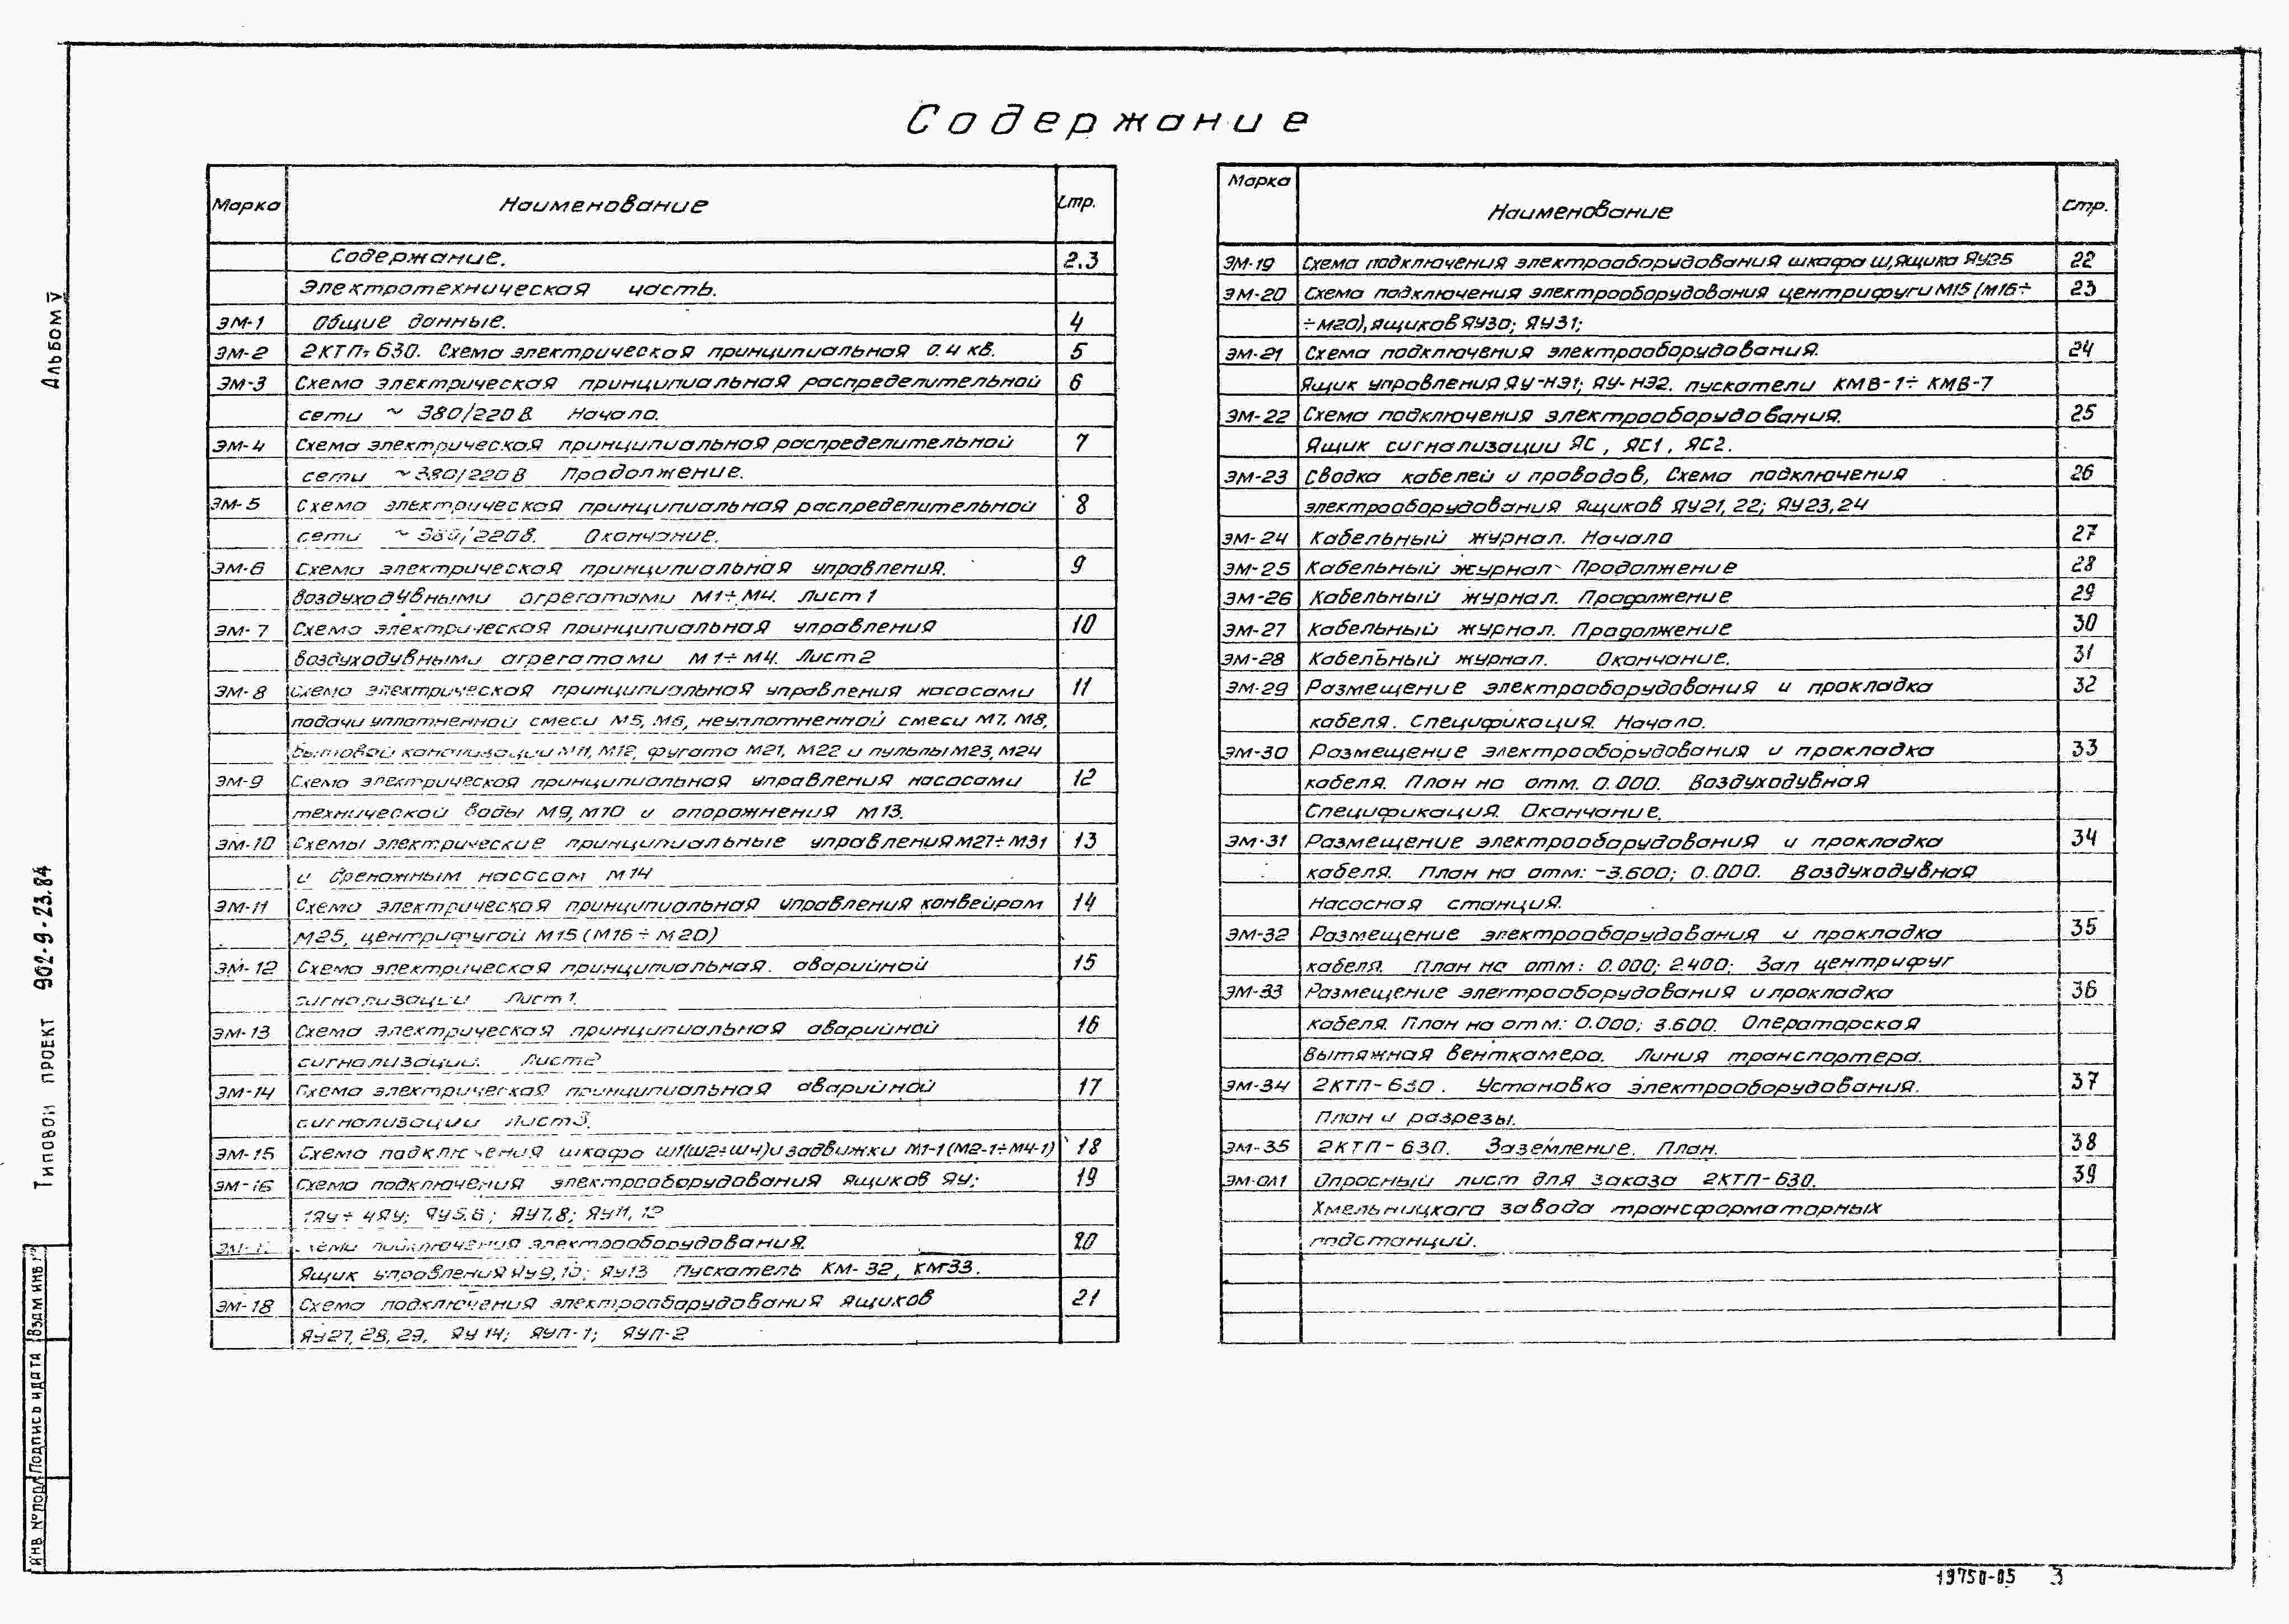 Содержание
Марка Наименование Стр.
Содержание. 2.3
Электротехническая часть.
ЭМ-1 Общие данные. 4
ЭМ-2 2КТП-630. Схема электрическая принципиальная 0.4 кв. 5
ЭМ-3 Схема электрическая принципиальная распределительной 6
сети ~ 380/220 В. Начало.
ЭМ-4 Схема электрическая принципиальная распределительной 7
сети ~380/220 В Продолжение.
ЭМ-5 Схема электрическая принципиальная распределительной 8
сети ~ 380/220 В. Окончание.
ЭМ-6 Схема электрическая принципиальная управления. 9
воздуходувными агрегатами М1÷М4. Лист 1
ЭМ-7 Схема электрическая принципиальная управления 10
воздуходувными агрегатами М1÷М4. Лист 2
ЭМ-8 Схема электрическая принципиальная управления насосами 11
подачи уплотненной смеси М5, М6, неуплотненной смеси М7, М8,
бытовой канализации М11, М12, фугата М21, М22 и пульпы М23, М24
ЭМ-9 Схема электрическая принципиальная управления насосами 12
технической воды М9, М10 и опорожнения М13.
ЭМ-10 Схемы электрические принципиальные управления М27÷М31 13
и дренажным насосом М14
ЭМ-11 Схема электрическая принципиальная управления конвейром 14
М25, центрифугой М15 (М16÷М20)
ЭМ-12 Схема электрическая принципиальная. аварийной 15
сигнализации Лист 1.
ЭМ-13 Схема электрическая принципиальная аварийной 16
сигнализации. Лист 2
ЭМ-14 Схема электрическая принципиальная аварийной 17
сигнализации Лист 3.
ЭМ-15 Схема подключения шкафа Ш1(Ш2÷Ш4) и задвижки М1-1 (М2-1÷М4-1) 18
ЭМ-16 Схема подключения электрооборудования ящиков ЯУ; 19
1ЯУ÷4ЯУ; ЯУ5,6; ЯУ7,8; ЯУ11, 12
Схема подключения электрооборудования. 20
Ящик управления ЯУ9,10; ЯУ13 Пускатель КМ-32, КМ33.
ЭМ-18 Схема подключения электрооборудования ящиков 21
ЯУ27, 28, 29, ЯУ14; ЯУП-1; ЯУП-2
Марка Наименование Стр.
ЭМ-19 Схема подключения электрооборудования шкафа Ш, ящика ЯУ25 22
ЭМ-20 Схема подключения электрооборудования центрифуги М15 (М16÷ 23
÷М20), ящиков ЯУ30; ЯУ31;
ЭМ-21 Схема подключения электрооборудования. 24
Ящик управления ЯУ-НЭ1; ЯУ-НЭ2. пускатели КМВ-1÷ КМВ-7
ЭМ-22 Схема подключения электрооборудования. 25
Ящик сигнализации ЯС, ЯС1, ЯС2.
ЭМ-23 Сводка кабелей и проводов, Схема подключения 26
электрооборудования ящиков ЯУ21, 22; ЯУ23, 24
ЭМ-24 Кабельный журнал. Начало 27
ЭМ-25 Кабельный журнал- Продолжение 28
ЭМ-26 Кабельный журнал. Продолжение 29
ЭМ-27 Кабельный журнал. Продолжение 30
ЭМ-28 Кабельный журнал. Окончание. 31
ЭМ-29 Размещение электрооборудования и прокладка 32
кабеля. Спецификация. Начало.
ЭМ-30 Размещение электрооборудования и прокладка 33
кабеля. План на отм. 0.000. Воздуходувная
Спецификация. Окончание.
ЭМ-31 Размещение электрооборудования и прокладка 34
кабеля. План на отм: -3.600; 0.000. Воздуходувная
Насосная станция.
ЭМ-32 Размещение электрооборудования и прокладка 35
кабеля. План на отм: 0.000; 2.400; Зал центрифуг
ЭМ-33 Размещение электрооборудования и прокладка 36
кабеля. План на отм: 0.000; 3.600. Операторская
Вытяжная венткамера. Линия транспортера.
ЭМ-34 2КТП-630. Установка электрооборудования. 37
План и разрезы.
ЭМ-35 2КТП-630. Заземление. План. 38
ЭМ-ОЛ1 Опросный лист для заказа 2КТП-630. 39
Хмельницкого завода трансформаторных
подстанций.
Альбом V
Типовой проект 902-9-23.84
Взам инв №
Подпись и дата
Инв № подл
19750-05 3